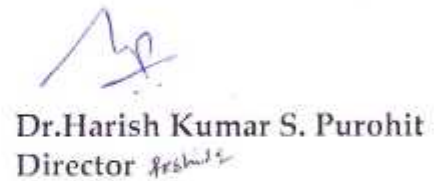 Dr.Harish Kumar S. Purohit
Director